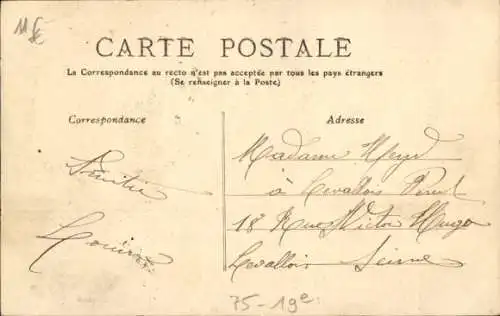 11 €
CARTE POSTALE
La Correspondance au recto n'est pas acceptée par tous les pays étrangers
(Se renseigner à la Poste)
Correspondance
Adresse
Madame Heyd
à Levallois Perret
18 Rue Victor Hugo
Levallois Seine
Louise
75-19e